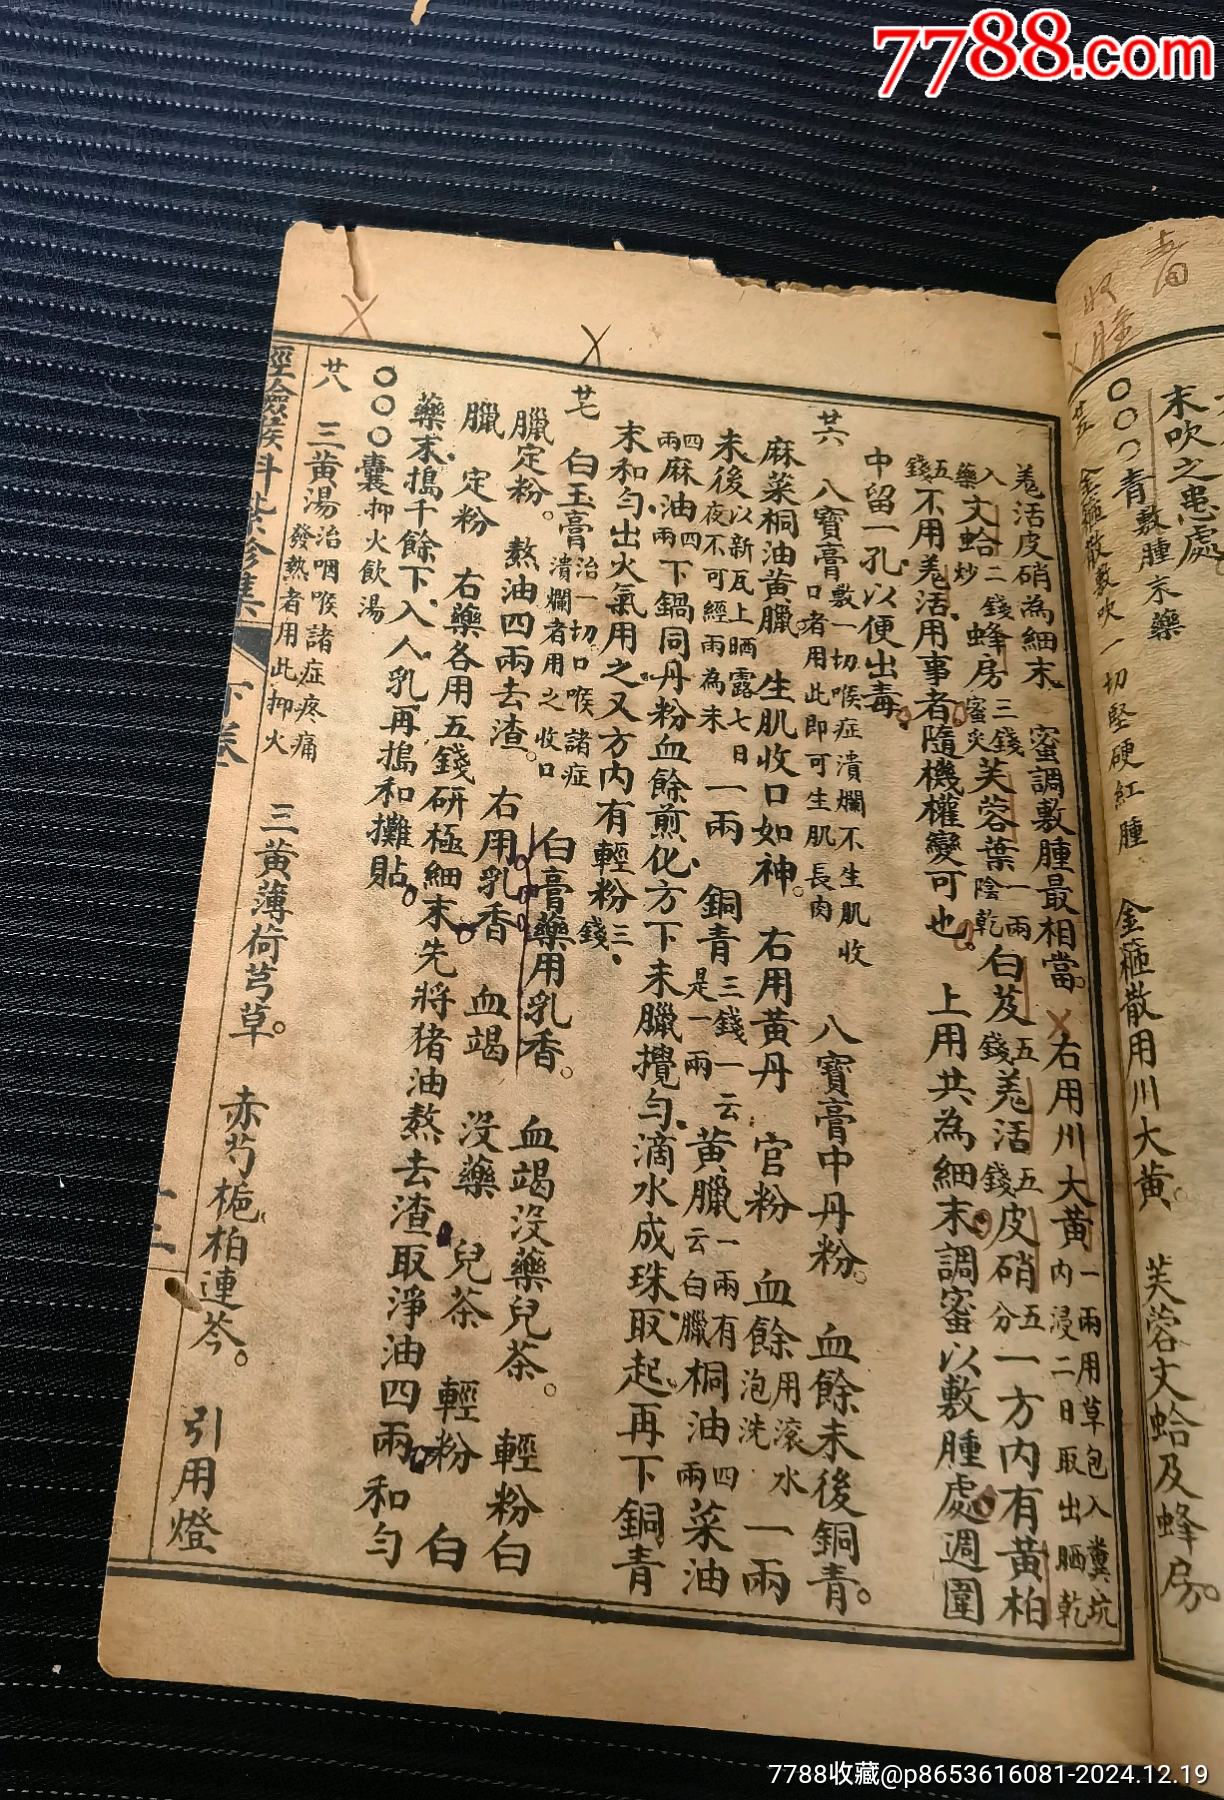 7788.com
五
圊
收
腫
末吹之患處
○○○青敷腫末藥
廿五 金箍散敷吹一切堅硬紅腫 金箍散用川大黃。 芙蓉文蛤及蜂房。
羌活皮硝為細末 蜜調敷腫最相當。 右用川大黃一兩用草包入糞坑內浸二日取出晒乾
入藥文蛤二錢炒蜂房三錢蜜炙芙蓉葉一兩陰乾白芨五錢羌活五錢皮硝五分一方內有黃柏
五錢不用羌活用事者隨機權變可也。 上用共為細末調蜜以敷腫處週圍
中留一孔以便出毒。
廿六 八寶膏敷一切喉症潰爛不生肌收口者用此即可生肌長肉 八寶膏中丹粉。 血餘末後銅青。
麻菜桐油黃臘 生肌收口如神。 右用黃丹 官粉 血餘用滾水泡洗一兩
末後以新瓦上晒露七日夜不可經雨為末一兩 銅青三錢一云是一兩黃臘一兩有云白臘桐油四兩菜油
四兩麻油四兩下鍋同丹粉血餘煎化方下末臘攪勻滴水成珠取起再下銅青
末和勻出火氣用之又方內有輕粉三錢
廿七 白玉膏治一切口喉諸症潰爛者用之收口 白膏藥用乳香。 血竭沒藥兒茶。 輕粉白
臘定粉。 熬油四兩去渣。 右用乳香 血竭 沒藥 兒茶 輕粉 白
臘 定粉 右藥各用五錢研極細末先將猪油熬去渣取淨油四兩和勻
藥末搗千餘下入人乳再搗和攤貼。
○○○囊抑火飲湯
廿八 三黃湯治咽喉諸症疼痛發熱者用此抑火 三黃薄荷芎草。 赤芍梔柏連芩。 引用燈
經驗喉科紫珍集 下卷 十二
7788收藏@p8653616081-2024.12.19